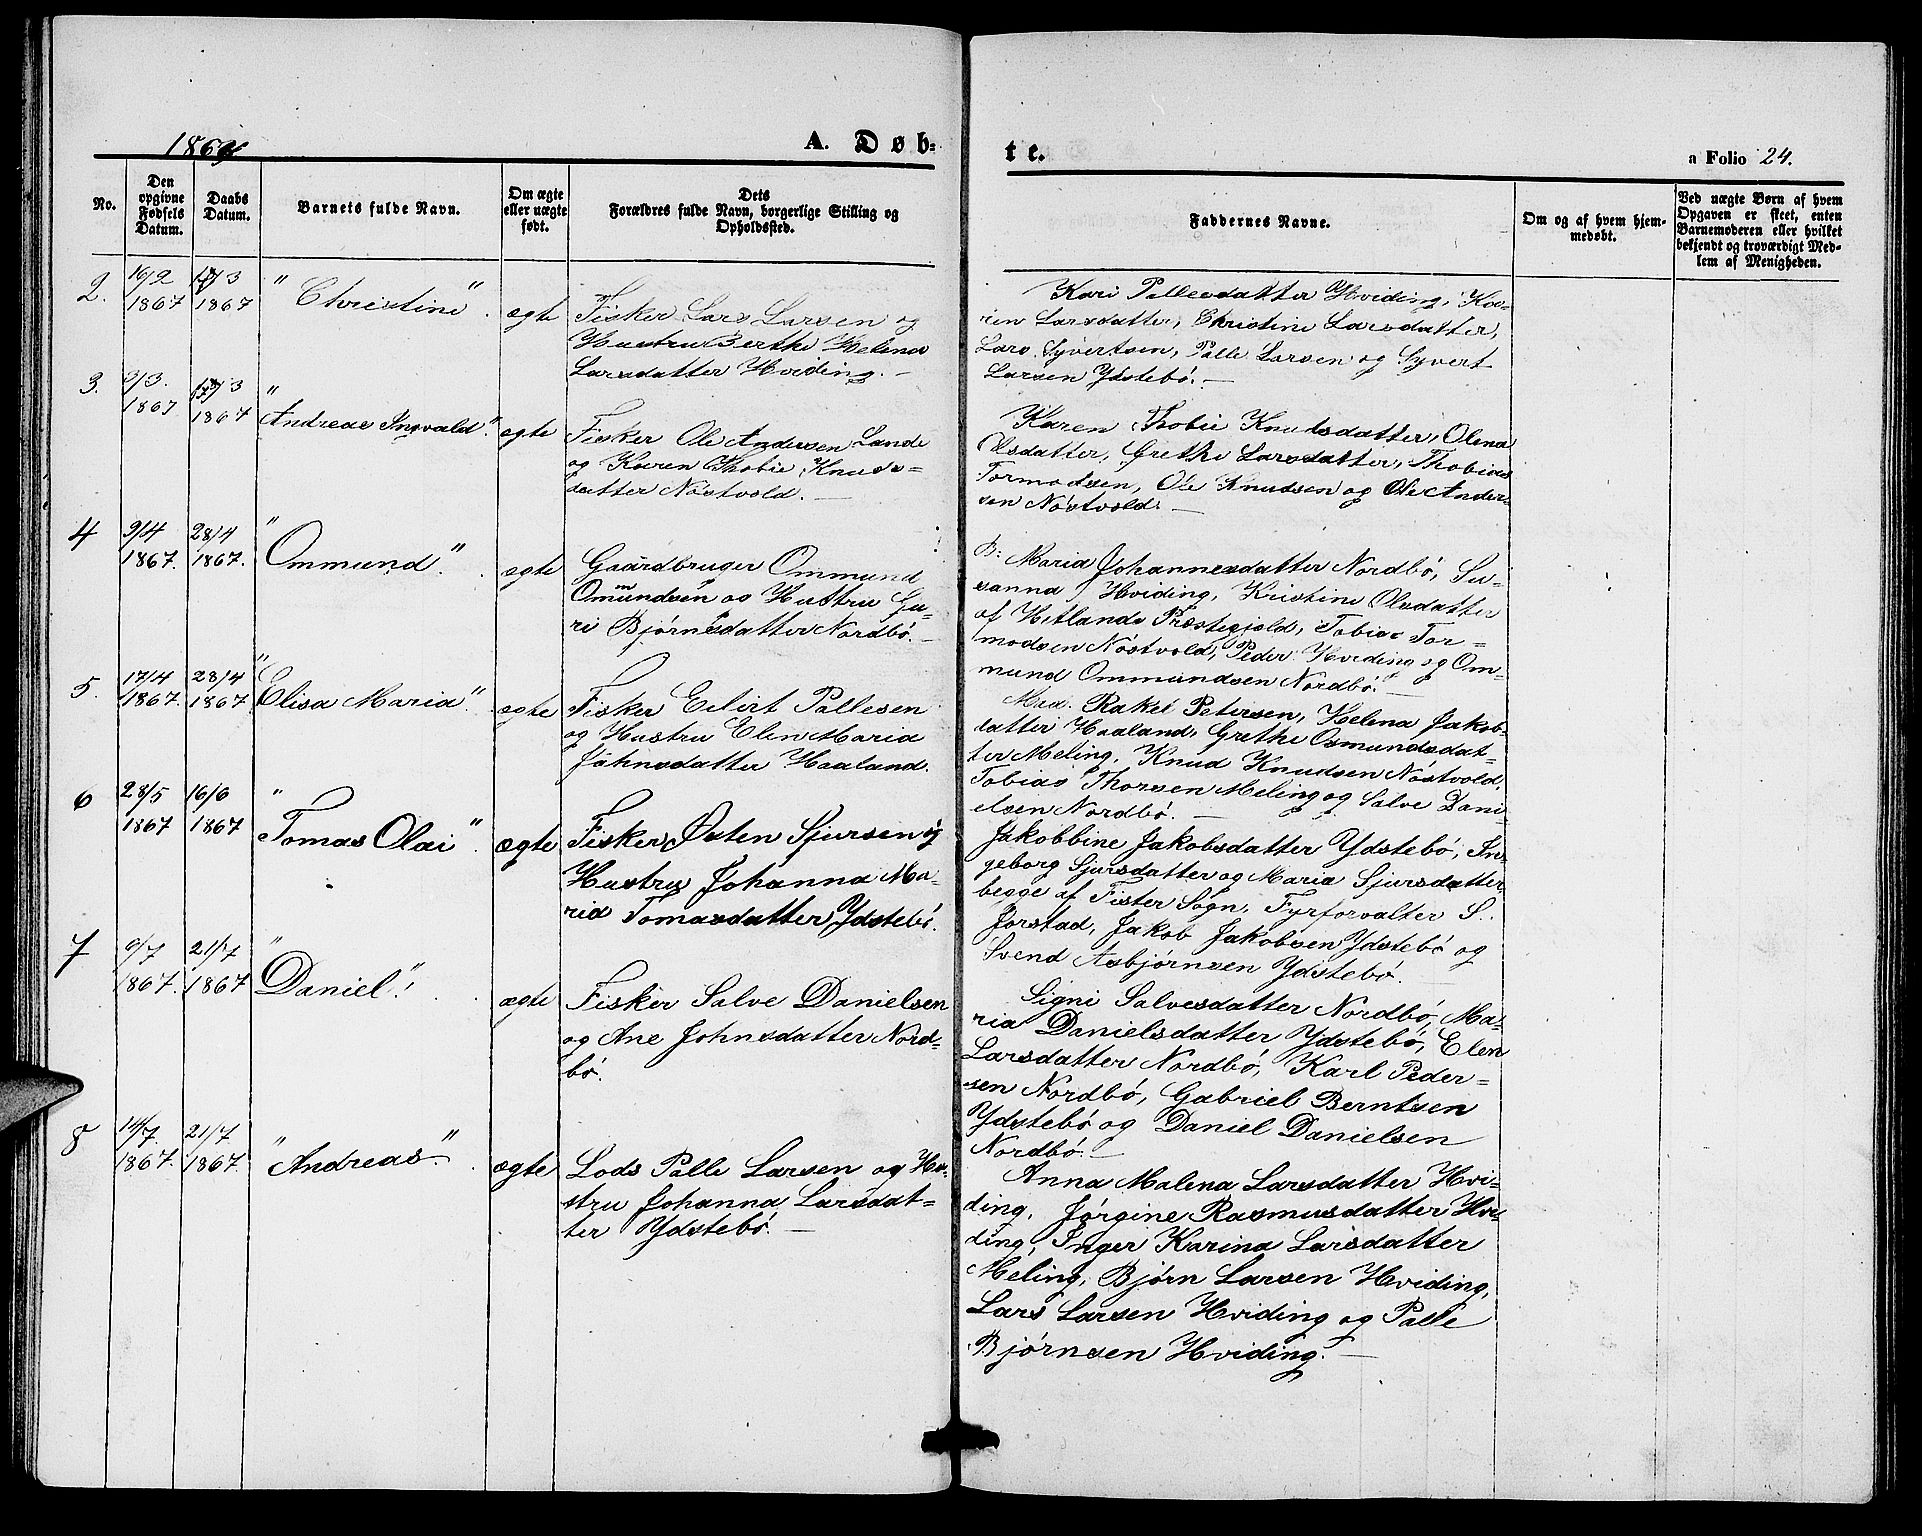 1867
A. Døb-
te.
a Folio 24.
No.
Den opgivne Fødsels Datum.
Daabs Datum.
Barnets fulde Navn.
Om ægte eller uægte født.
Dets Forældres fulde Navn, borgerlige Stilling og Opholdssted.
Faddernes Navne.
Om og af hvem hjemmedøbt.
Ved uægte Børn af hvem Opgaven er skeet, enten Barnemoderen eller hvilket bekjendt og troværdigt Medlem af Menigheden.
2.
16/2
1867
17/3
1867
"Christine"
ægte
Fisker Lars Larsen og
Hustru Berthe Helena
Larsdatter Hviding. —
Kari Pallesdatter Hviding, Ka-
ren Larsdatter, Christine Larsdatter,
Lars Syvertsen, Palle Larsen og Syvert
Larsen Ydstebö. —
3.
3/3.
1867
17/3
1867
"Andreas Ingvald"
ægte
Fisker Ole Andersen Lande
og Karen Thobie Knuds=
datter Nöstvold. —
Karen Thobie Knudsdatter, Olena
Olsdatter, Grethe Larsdatter, Thobias
Tormodsen, Ole Knudsen og Ole Ander-
sen Nöstvold. —
4
9/4
1867.
28/4
1867.
"Ommund"
ægte
Gaardbruger Ommund
Ommundsen og Hustru Gu-
ri Björnsdatter Nordbö. —
B: Maria Johannesdatter Nordbö, Su-
sanna Hviding, Kristine Olsdatter
af Hetlands Præstegjeld, Tobias Tor=
modsen Nöstvold, Peder Hviding og Om-
mund Ommundsen Nordbö. —
5.
17/4
1867.
28/4
1867.
"Elisa Maria"
ægte
Fisker Eilert Pallesen
og Hustru Elen Maria
Johnsdatter Haaland.
Mad. Rakel Petersen, Helena Jakobs-
datter Haaland, Grethe Osmundsdat-
ter Meling, Knud Knudsen Nöstvold,
Tobias Thorsen Meling og Salve Dani
elsen Nordbö. —
6
28/5
1867
16/6
1867
"Tomas Olai"
ægte
Fisker Östen Sjursen og
Hustru Johanna Ma-
ria Tomasdatter Ydstebö.
Jakobbine Jakobsdatter Ydstebö, In-
geborg Sjursdatter og Maria Sjursdatter
begge af Fister Sogn, Fyrforvalter S.
Jorstad, Jakob Jakobsen Ydstebö og
Svend Asbjörnsen Ydstebö.
7
6/7
1867.
21/7
1867
"Daniel"
ægte
Fisker Salve Danielsen
og Ane Johnsdatter Nord=
bö.
Signi Salvesdatter Nordbö, Ma-
ria Danielsdatter Ydstebö, Elen
Larsdatter Nordbö, Karl Peder=
sen Nordbö, Gabriel Berntsen
Ydstebö og Daniel Danielsen
Nordbö. —
8
14/7.
1867.
21/7
1867.
"Andreas"
ægte
Lods Palle Larsen og Hu-
stru Johanna Larsdat=
ter Ydstebö. —
Anna Malena Larsdatter Hvi-
ding, Jörgine Rasmusdatter Hvi-
ding, Inger Karina Larsdatter
Meling, Björn Larsen Hviding,
Lars Larsen Hviding og Palle
Björnsen Hviding. —